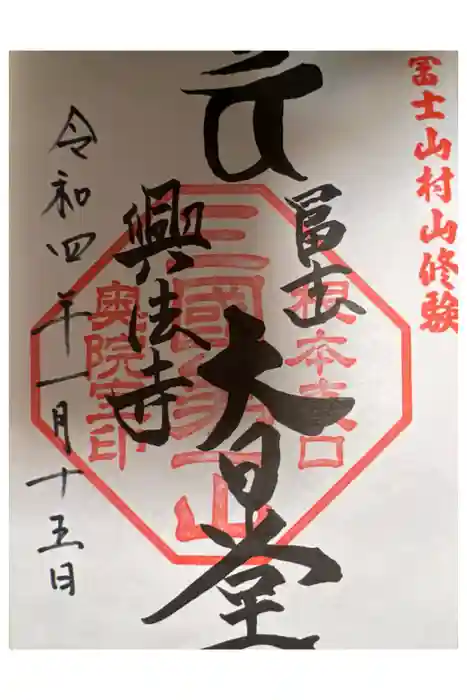 冨士山村山修験
冨士
大日堂
興法寺
令和四年一月十五日
根本表口
三國第一山